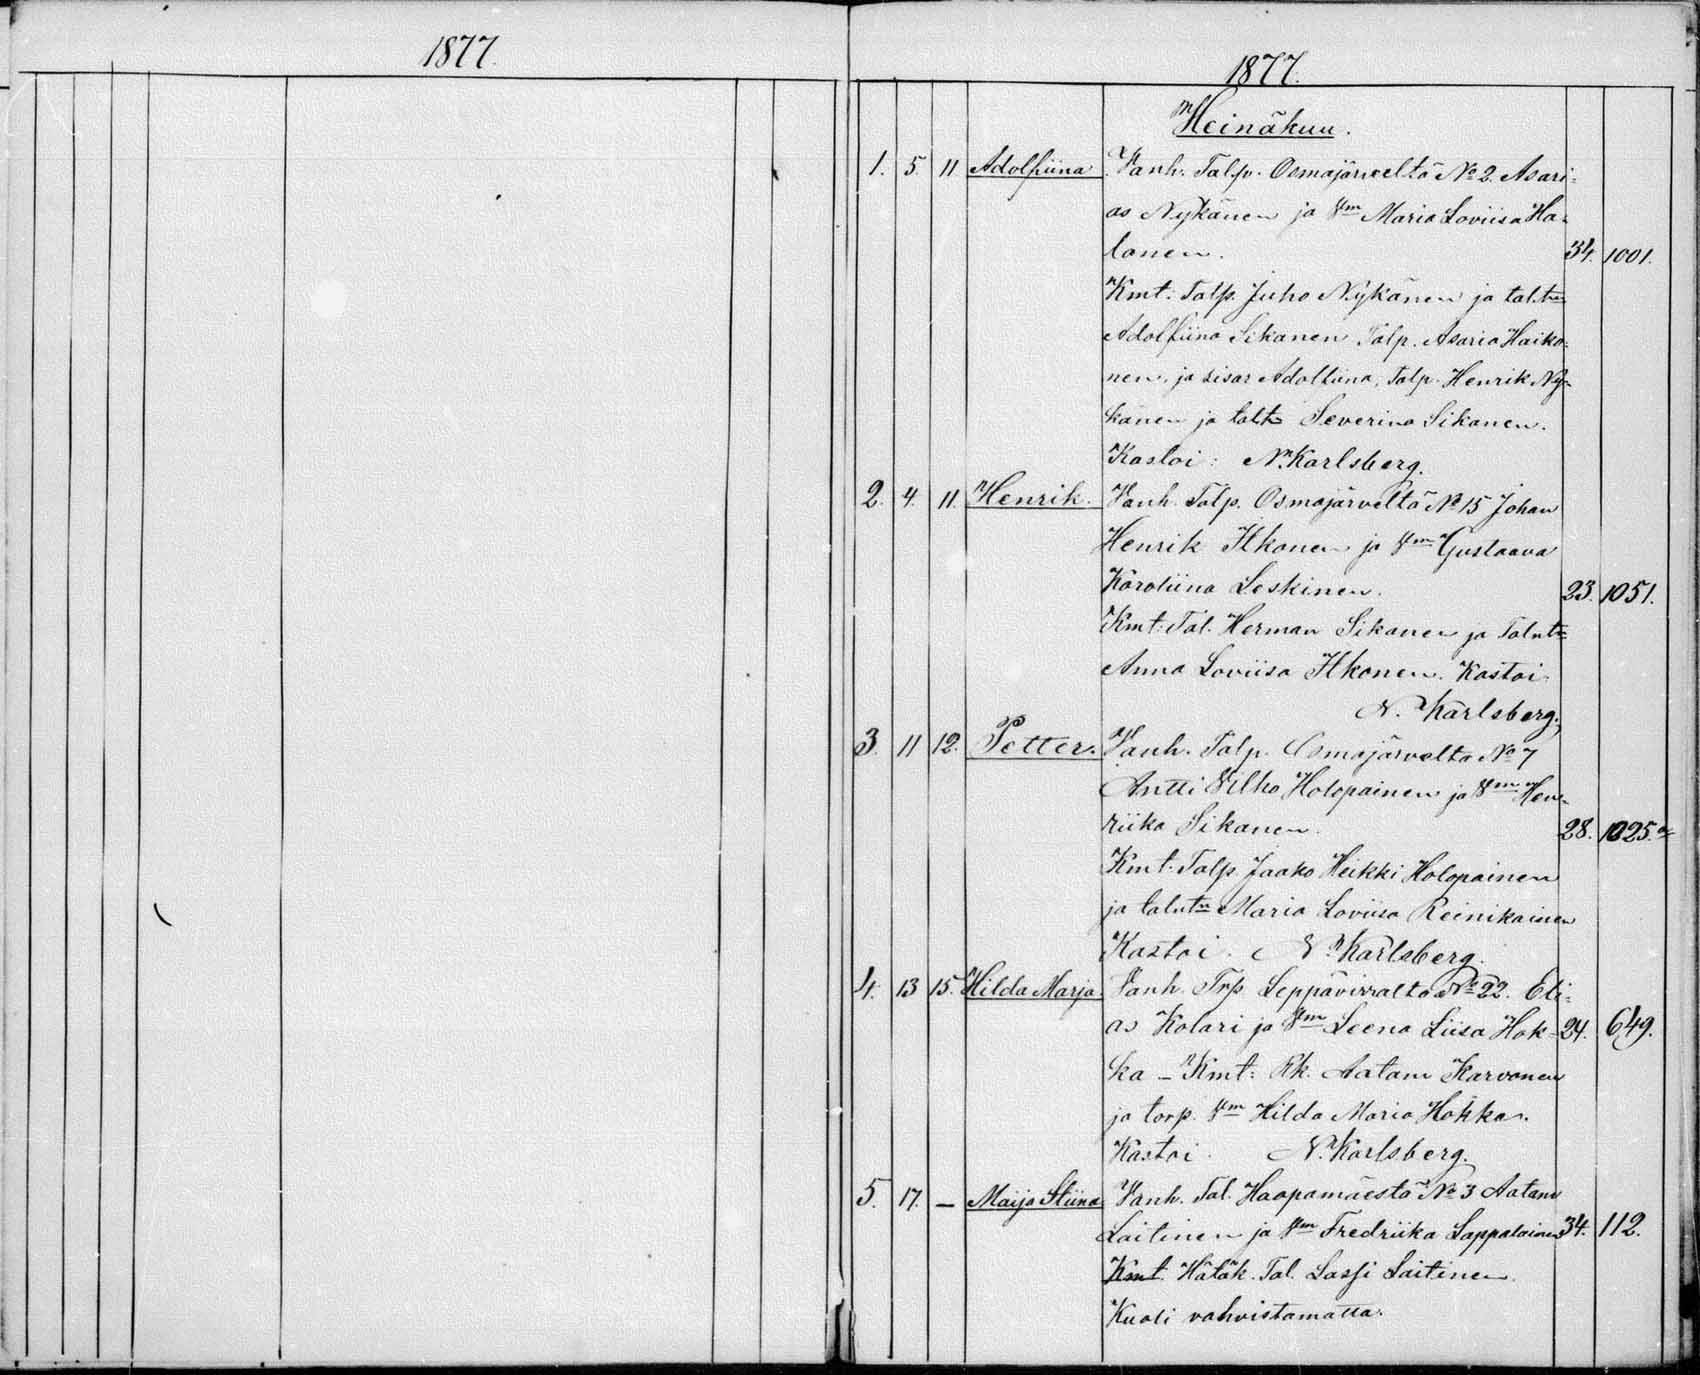 1877.
1877.
Heinäkuu.
1. 5. 11 Adolfiina Vanh. Talp. Osmajärveltä No 2. Asari-
as Nykänen ja Vm Maria Loviisa Ha-
lonen. 34. 1001.
Kmt. Talp. Juho Nykänen ja talt
Adolfiina Sikanen Talp. Asaria Haiko-
nen, ja sisar Adolfiina, Talp. Henrik Ny-
känen ja talt Severina Sikanen.
Kastoi: N. Karlsberg.
2. 4. 11. Henrik. Vanh. Talp. Osmajärveltä No 15 Johan
Henrik Ilkonen ja Vm Gustaava
Karoliina Leskinen. 23. 1051.
Kmt: Tal. Herman Sikanen ja Talut
Anna Loviisa Ilkonen. Kastoi
N. Karlsberg.
3. 11 12. Petter. Vanh. Talp. Osmajärveltä No 7
Antti Vilho Holopainen ja Vm Hen-
riika Sikanen. 28. 1025.
Kmt. Talp. Jaako Heikki Holopainen
ja talut Maria Loviisa Reinikainen
Kastoi. N. Karlsberg.
4. 13 15. Hilda Marja Vanh. Trp. Leppävirralta No 22. Eli-
as Kolari ja Vm Leena Liisa Hok- 24. 649.
ka – Kmt: Rk. Aatam Karvonen
ja torp. Vm Hilda Maria Hokka.
Kastoi. N. Karlsberg.
5. 17. – Maija Stiina Vanh. Tal. Haapamäestä No 3 Aatam
Laitinen ja Vm Fredriika Lappalainen 34. 112.
Kmt Hätäk. Tal. Lassi Laitinen.
Kuoli vahvistamatta.